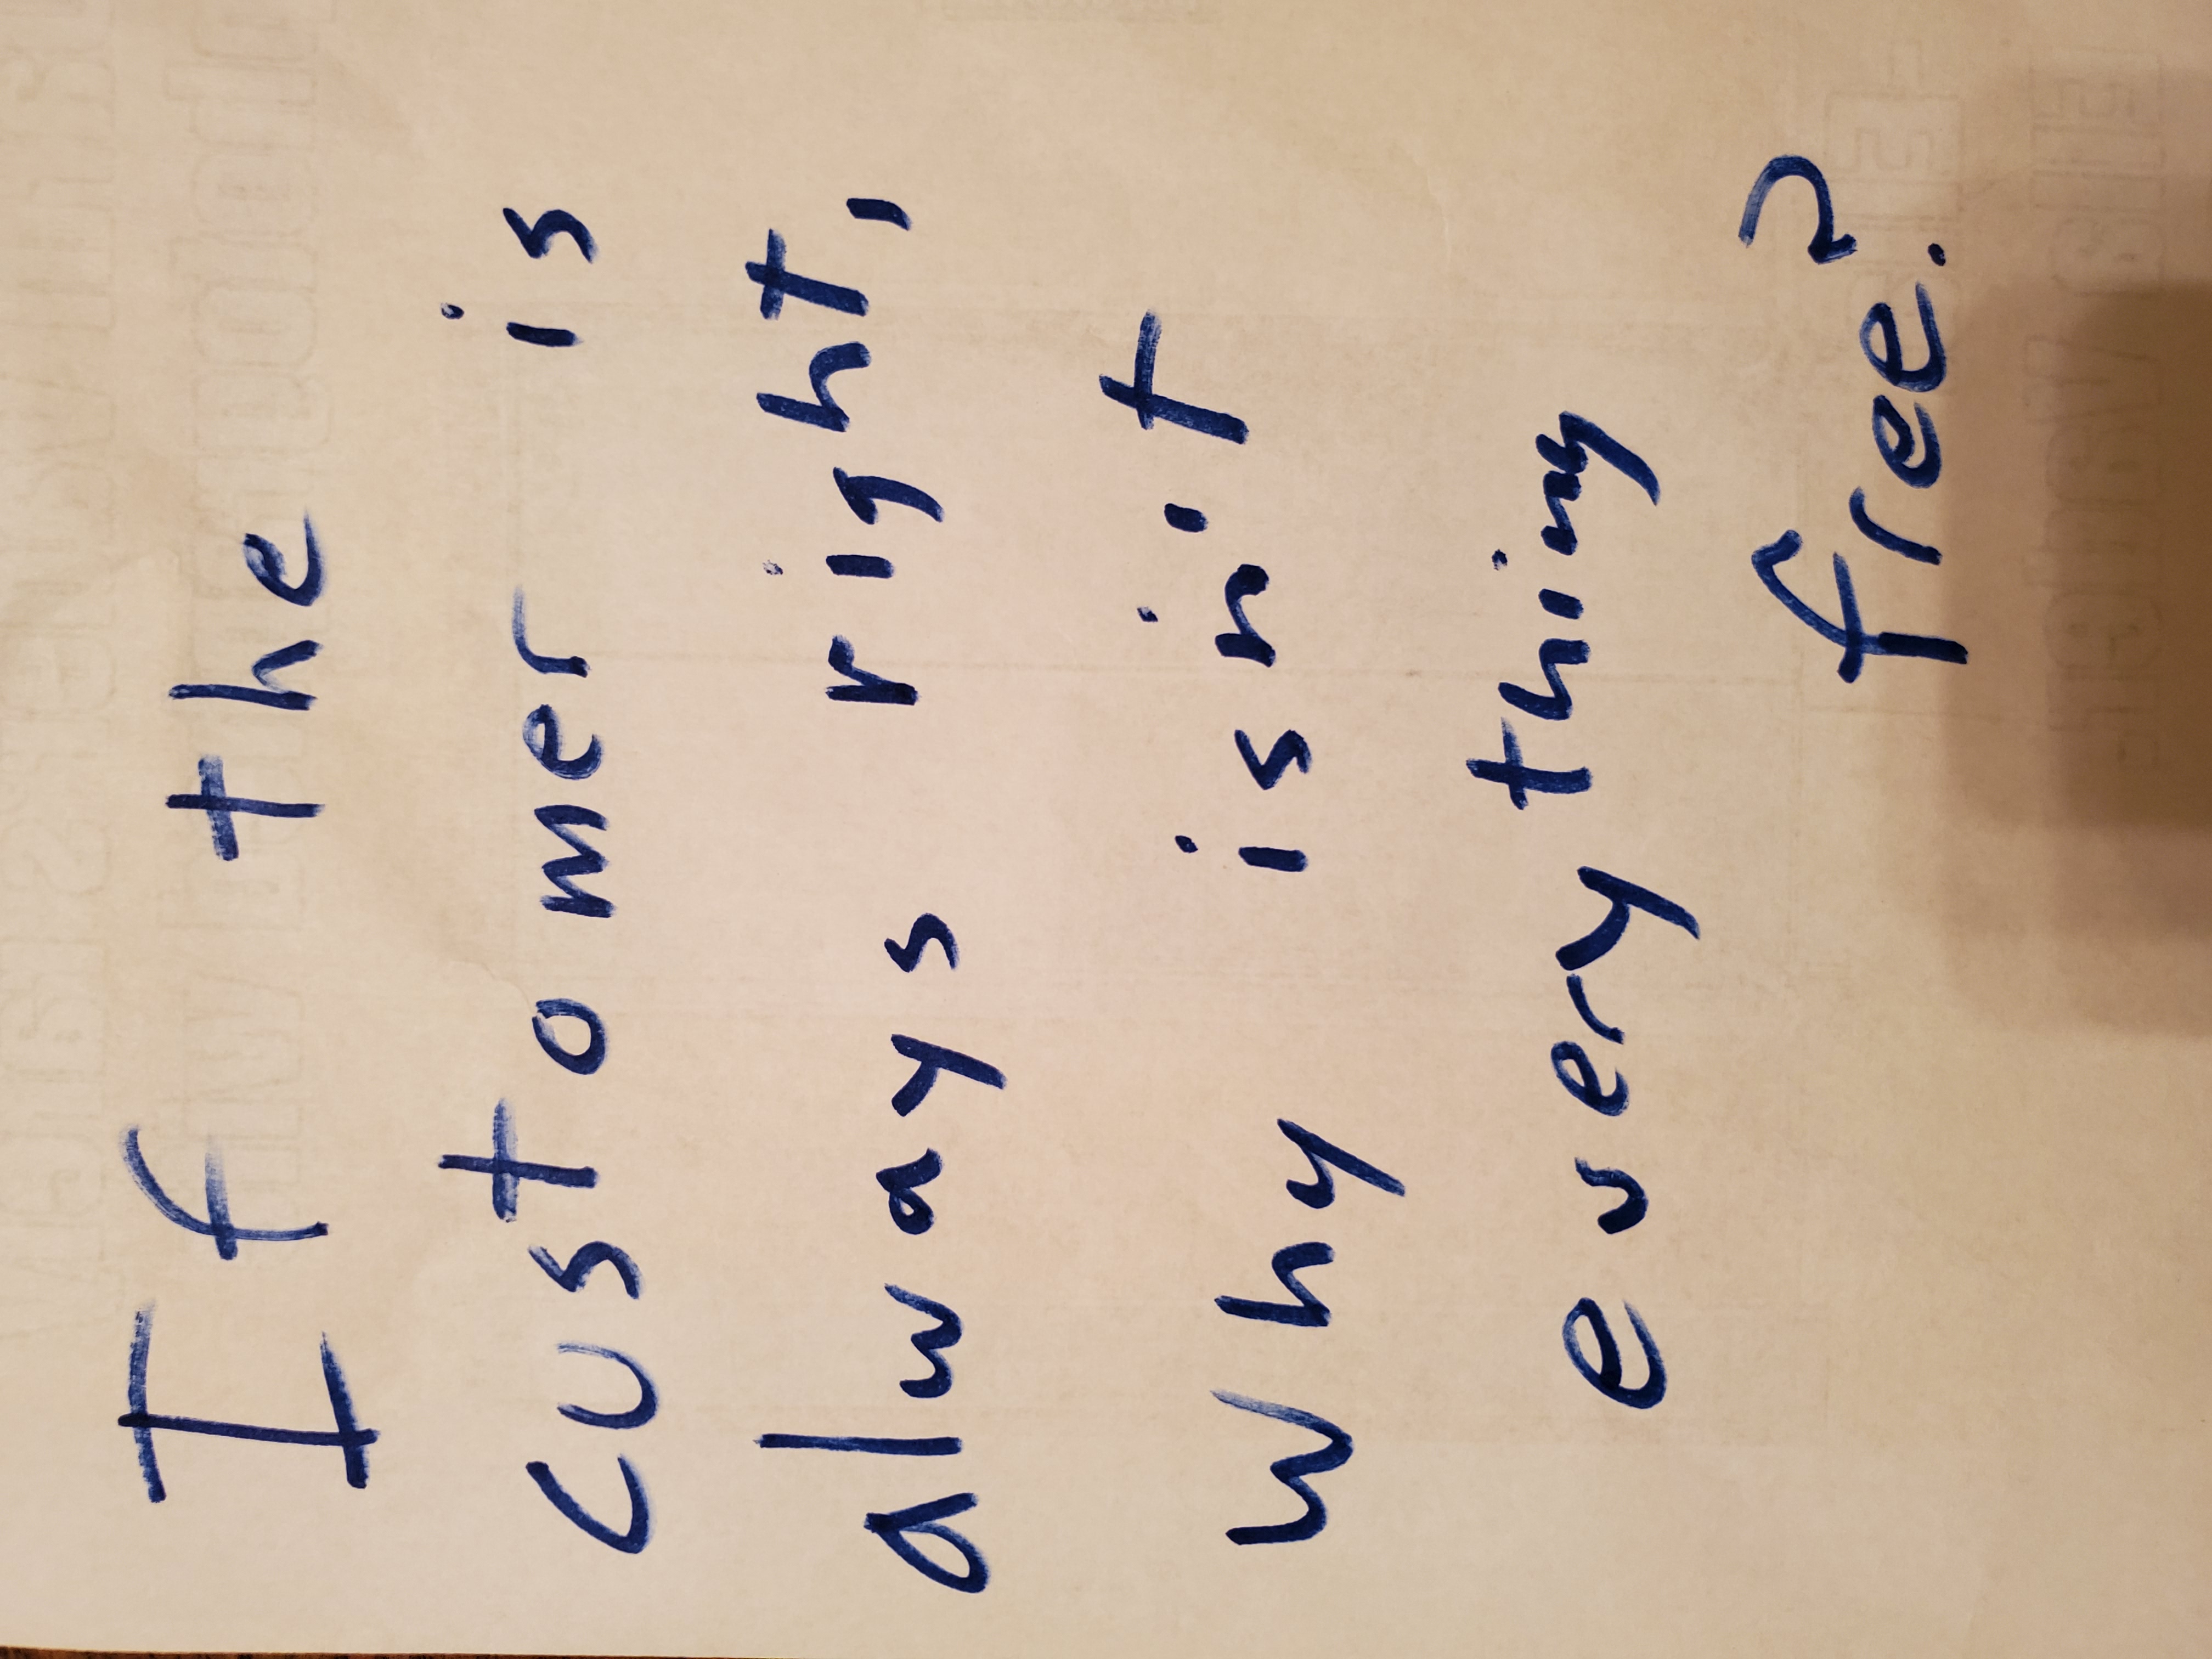 If the
customer is
always right,
why isn't
everything
free?